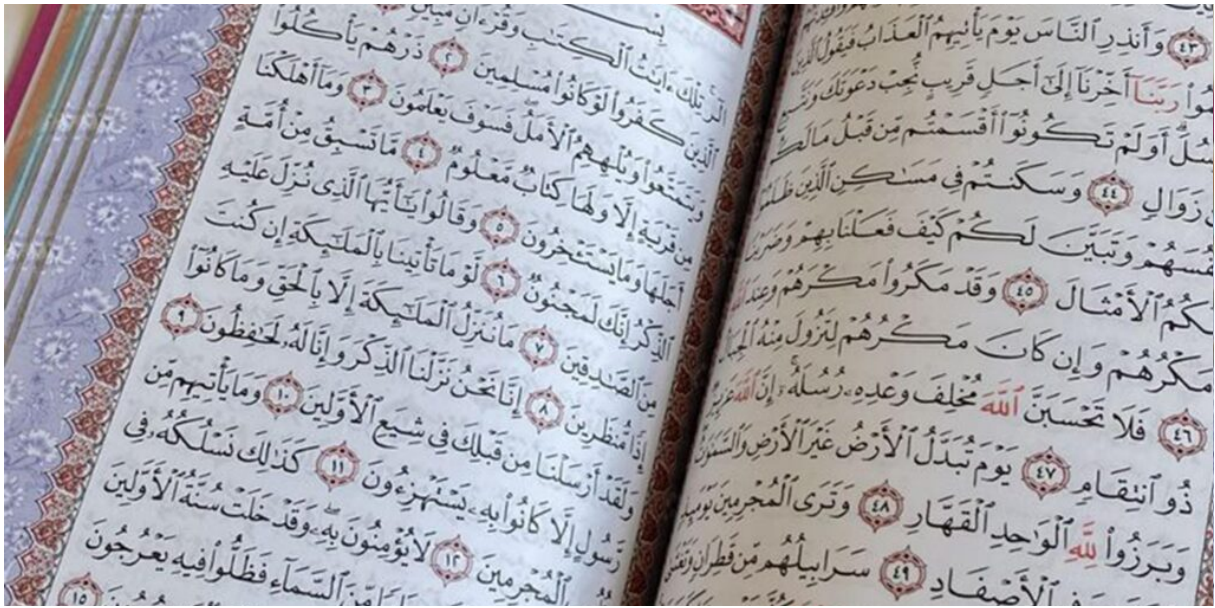 ٤٣ وَأَنذِرِ ٱلنَّاسَ يَوْمَ يَأْتِيهِمُ ٱلْعَذَابُ فَيَقُولُ ٱلَّذِينَ
رَبَّنَآ أَخِّرْنَآ إِلَىٰٓ أَجَلٍ قَرِيبٍ نُّجِبْ دَعْوَتَكَ وَنَتَّبِعِ
أَوَلَمْ تَكُونُوٓا۟ أَقْسَمْتُم مِّن قَبْلُ مَا لَكُم
زَوَالٍ ٤٤ وَسَكَنتُمْ فِى مَسَٰكِنِ ٱلَّذِينَ
وَتَبَيَّنَ لَكُمْ كَيْفَ فَعَلْنَا بِهِمْ وَضَرَبْنَا
ٱلْأَمْثَالَ ٤٥ وَقَدْ مَكَرُوا۟ مَكْرَهُمْ وَعِندَ ٱللَّهِ
مَكْرُهُمْ وَإِن كَانَ مَكْرُهُمْ لِتَزُولَ مِنْهُ ٱلْجِبَالُ
٤٦ فَلَا تَحْسَبَنَّ ٱللَّهَ مُخْلِفَ وَعْدِهِۦ رُسُلَهُۥٓ إِنَّ ٱللَّهَ عَزِيزٌ
ذُو ٱنتِقَامٍ ٤٧ يَوْمَ تُبَدَّلُ ٱلْأَرْضُ غَيْرَ ٱلْأَرْضِ وَٱلسَّمَٰوَٰتُ
وَبَرَزُوا۟ لِلَّهِ ٱلْوَٰحِدِ ٱلْقَهَّارِ ٤٨ وَتَرَى ٱلْمُجْرِمِينَ يَوْمَئِذٍ
ٱلْأَصْفَادِ ٤٩ سَرَابِيلُهُم مِّن قَطِرَانٍ وَتَغْشَىٰ
الٓر تِلْكَ ءَايَٰتُ ٱلْكِتَٰبِ وَقُرْءَانٍ مُّبِينٍ
ٱلَّذِينَ كَفَرُوا۟ لَوْ كَانُوا۟ مُسْلِمِينَ ٢ ذَرْهُمْ يَأْكُلُوا۟
وَيَتَمَتَّعُوا۟ وَيُلْهِهِمُ ٱلْأَمَلُ فَسَوْفَ يَعْلَمُونَ ٣ وَمَآ أَهْلَكْنَا
مِن قَرْيَةٍ إِلَّا وَلَهَا كِتَابٌ مَّعْلُومٌ ٤ مَّا تَسْبِقُ مِنْ أُمَّةٍ
أَجَلَهَا وَمَا يَسْتَـْٔخِرُونَ ٥ وَقَالُوا۟ يَٰٓأَيُّهَا ٱلَّذِى نُزِّلَ عَلَيْهِ
ٱلذِّكْرُ إِنَّكَ لَمَجْنُونٌ ٦ لَّوْ مَا تَأْتِينَا بِٱلْمَلَٰٓئِكَةِ إِن كُنتَ
مِنَ ٱلصَّٰدِقِينَ ٧ مَا نُنَزِّلُ ٱلْمَلَٰٓئِكَةَ إِلَّا بِٱلْحَقِّ وَمَا كَانُوٓا۟
إِذًا مُّنظَرِينَ ٨ إِنَّا نَحْنُ نَزَّلْنَا ٱلذِّكْرَ وَإِنَّا لَهُۥ لَحَٰفِظُونَ ٩
وَلَقَدْ أَرْسَلْنَا مِن قَبْلِكَ فِى شِيَعِ ٱلْأَوَّلِينَ ١٠ وَمَا يَأْتِيهِم مِّن
رَّسُولٍ إِلَّا كَانُوا۟ بِهِۦ يَسْتَهْزِءُونَ ١١ كَذَٰلِكَ نَسْلُكُهُۥ فِى
ٱلْمُجْرِمِينَ ١٢ لَا يُؤْمِنُونَ بِهِۦ وَقَدْ خَلَتْ سُنَّةُ ٱلْأَوَّلِينَ
مِّنَ ٱلسَّمَآءِ فَظَلُّوا۟ فِيهِ يَعْرُجُونَ
١٥